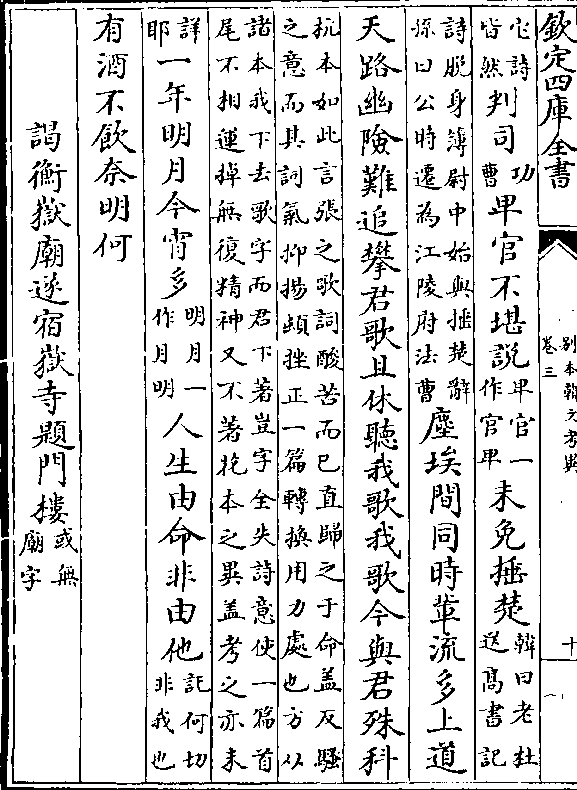 欽定四庫全書
別本韓文考異
卷三
十
它詩皆然判司功曹卑官不堪說卑官一作官卑未免捶楚韓曰老杜送髙書記
詩脫身簿尉中始與捶楚辭孫曰公時遷為江陵府法曹塵埃間同時輩流多上道
天路幽險難追攀君歌且休聽我歌我歌今與君殊科
杭本如此言張之歌詞酸苦而已直歸之于命盖反騷之意而其詞氣抑揚頓挫正一篇轉換用力處也方从
諸本我下去歌字而君下著豈字全失詩意使一篇首尾不相運掉無復精神又不著杭本之異盖考之亦未
詳耶一年明月今宵多明月一作月明人生由命非由他託何切非我也
有酒不飲奈明何
謁衡嶽廟遂宿嶽寺題門樓或無廟字